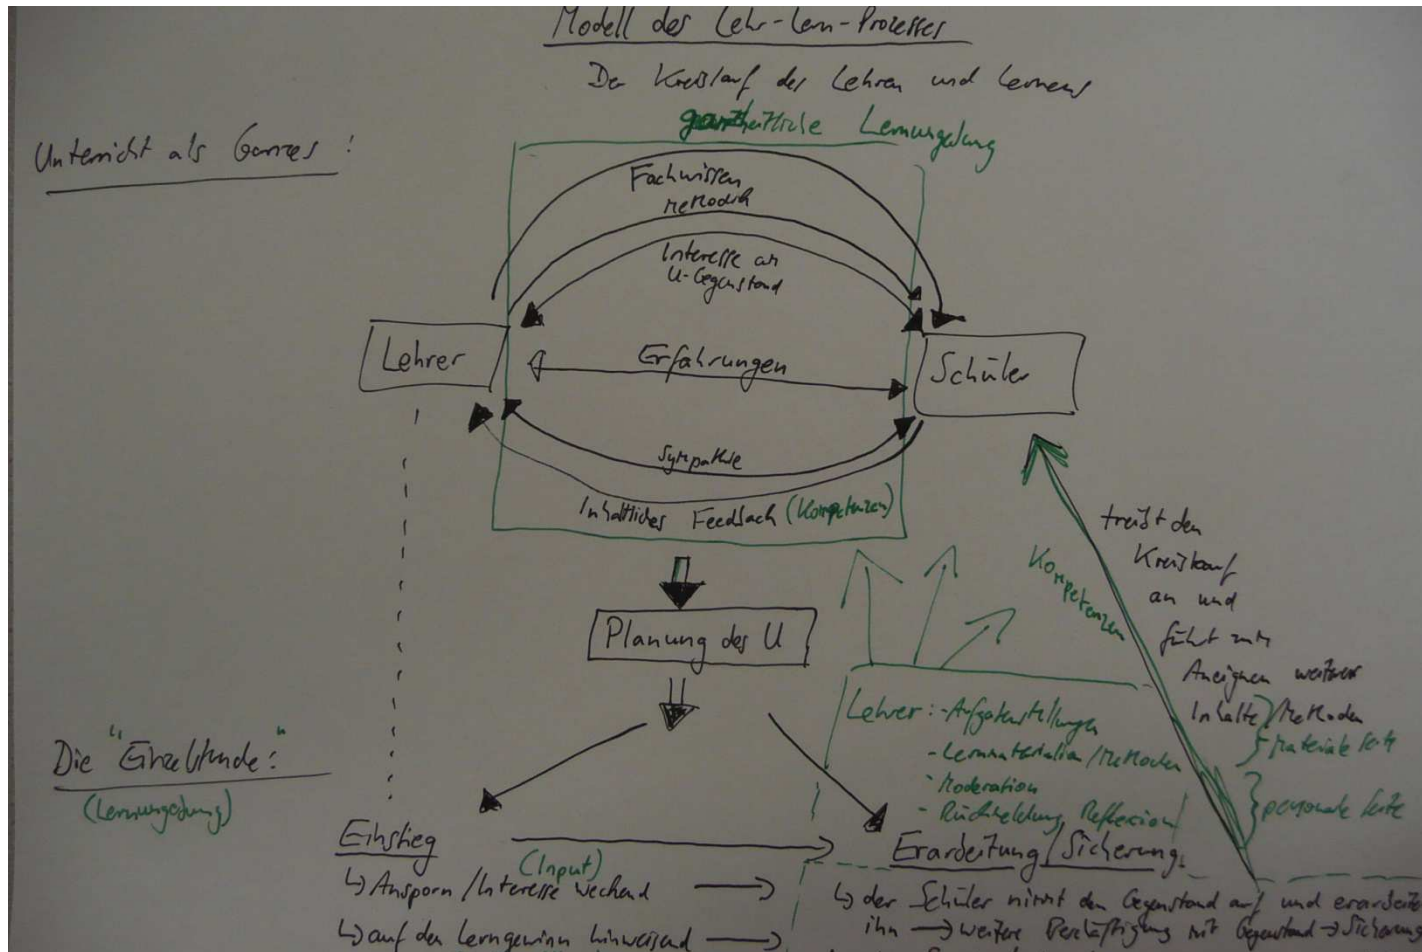 Modell des Lehr-Lern-Prozesses
Der Kreislauf des Lehren und Lernens
ganzheitliche Lernumgebung
Unterricht als Ganzes :
Fachwissen
Methodik
Interesse am
U-Gegenstand
Lehrer
Erfahrungen
Schüler
Sympathie
Inhaltliches Feedback (Kompetenzen)
Planung des U
Kompetenzen
treibt den
Kreislauf
an und
führt zum
Aneignen weiterer
Inhalte / Methoden
materiale Seite
personale Seite
Lehrer : - Aufgabenstellungen
- Lernmaterialien / Methoden
- Moderation
- Rückmeldung Reflexion
Die "Einzelstunde:"
(Lernumgebung)
Einstieg
(Input)
Erarbeitung / Sicherung
↳ Ansporn / Interesse weckend
↳ der Schüler nimmt den Gegenstand auf und
↳ auf den Lerngewinn hinweisend
ihn → weitere Beschäftigung mit Gegenstand → Sicherung